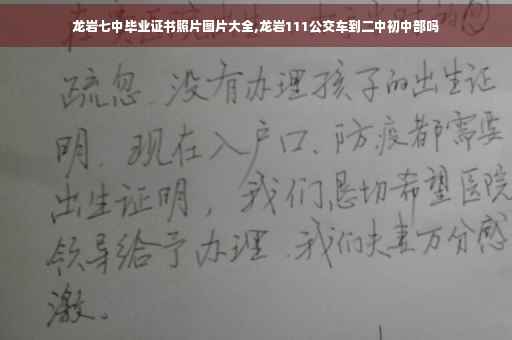 龙岩七中毕业证书照片图片大全,龙岩111公交车到二中初中部吗
疏忽、没有办理孩子的出生证
明、现在入户口、防疫都需要
出生证明，我们恳切希望医院
领导给予办理、我们夫妻万分感
激。